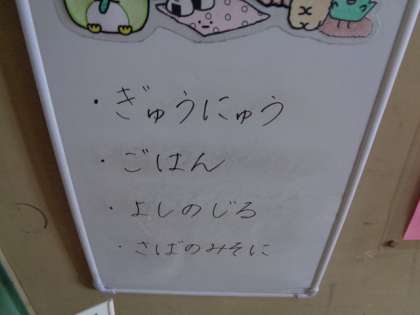 ・ぎゅうにゅう
・ごはん
・よしのじる
・さばのみそに